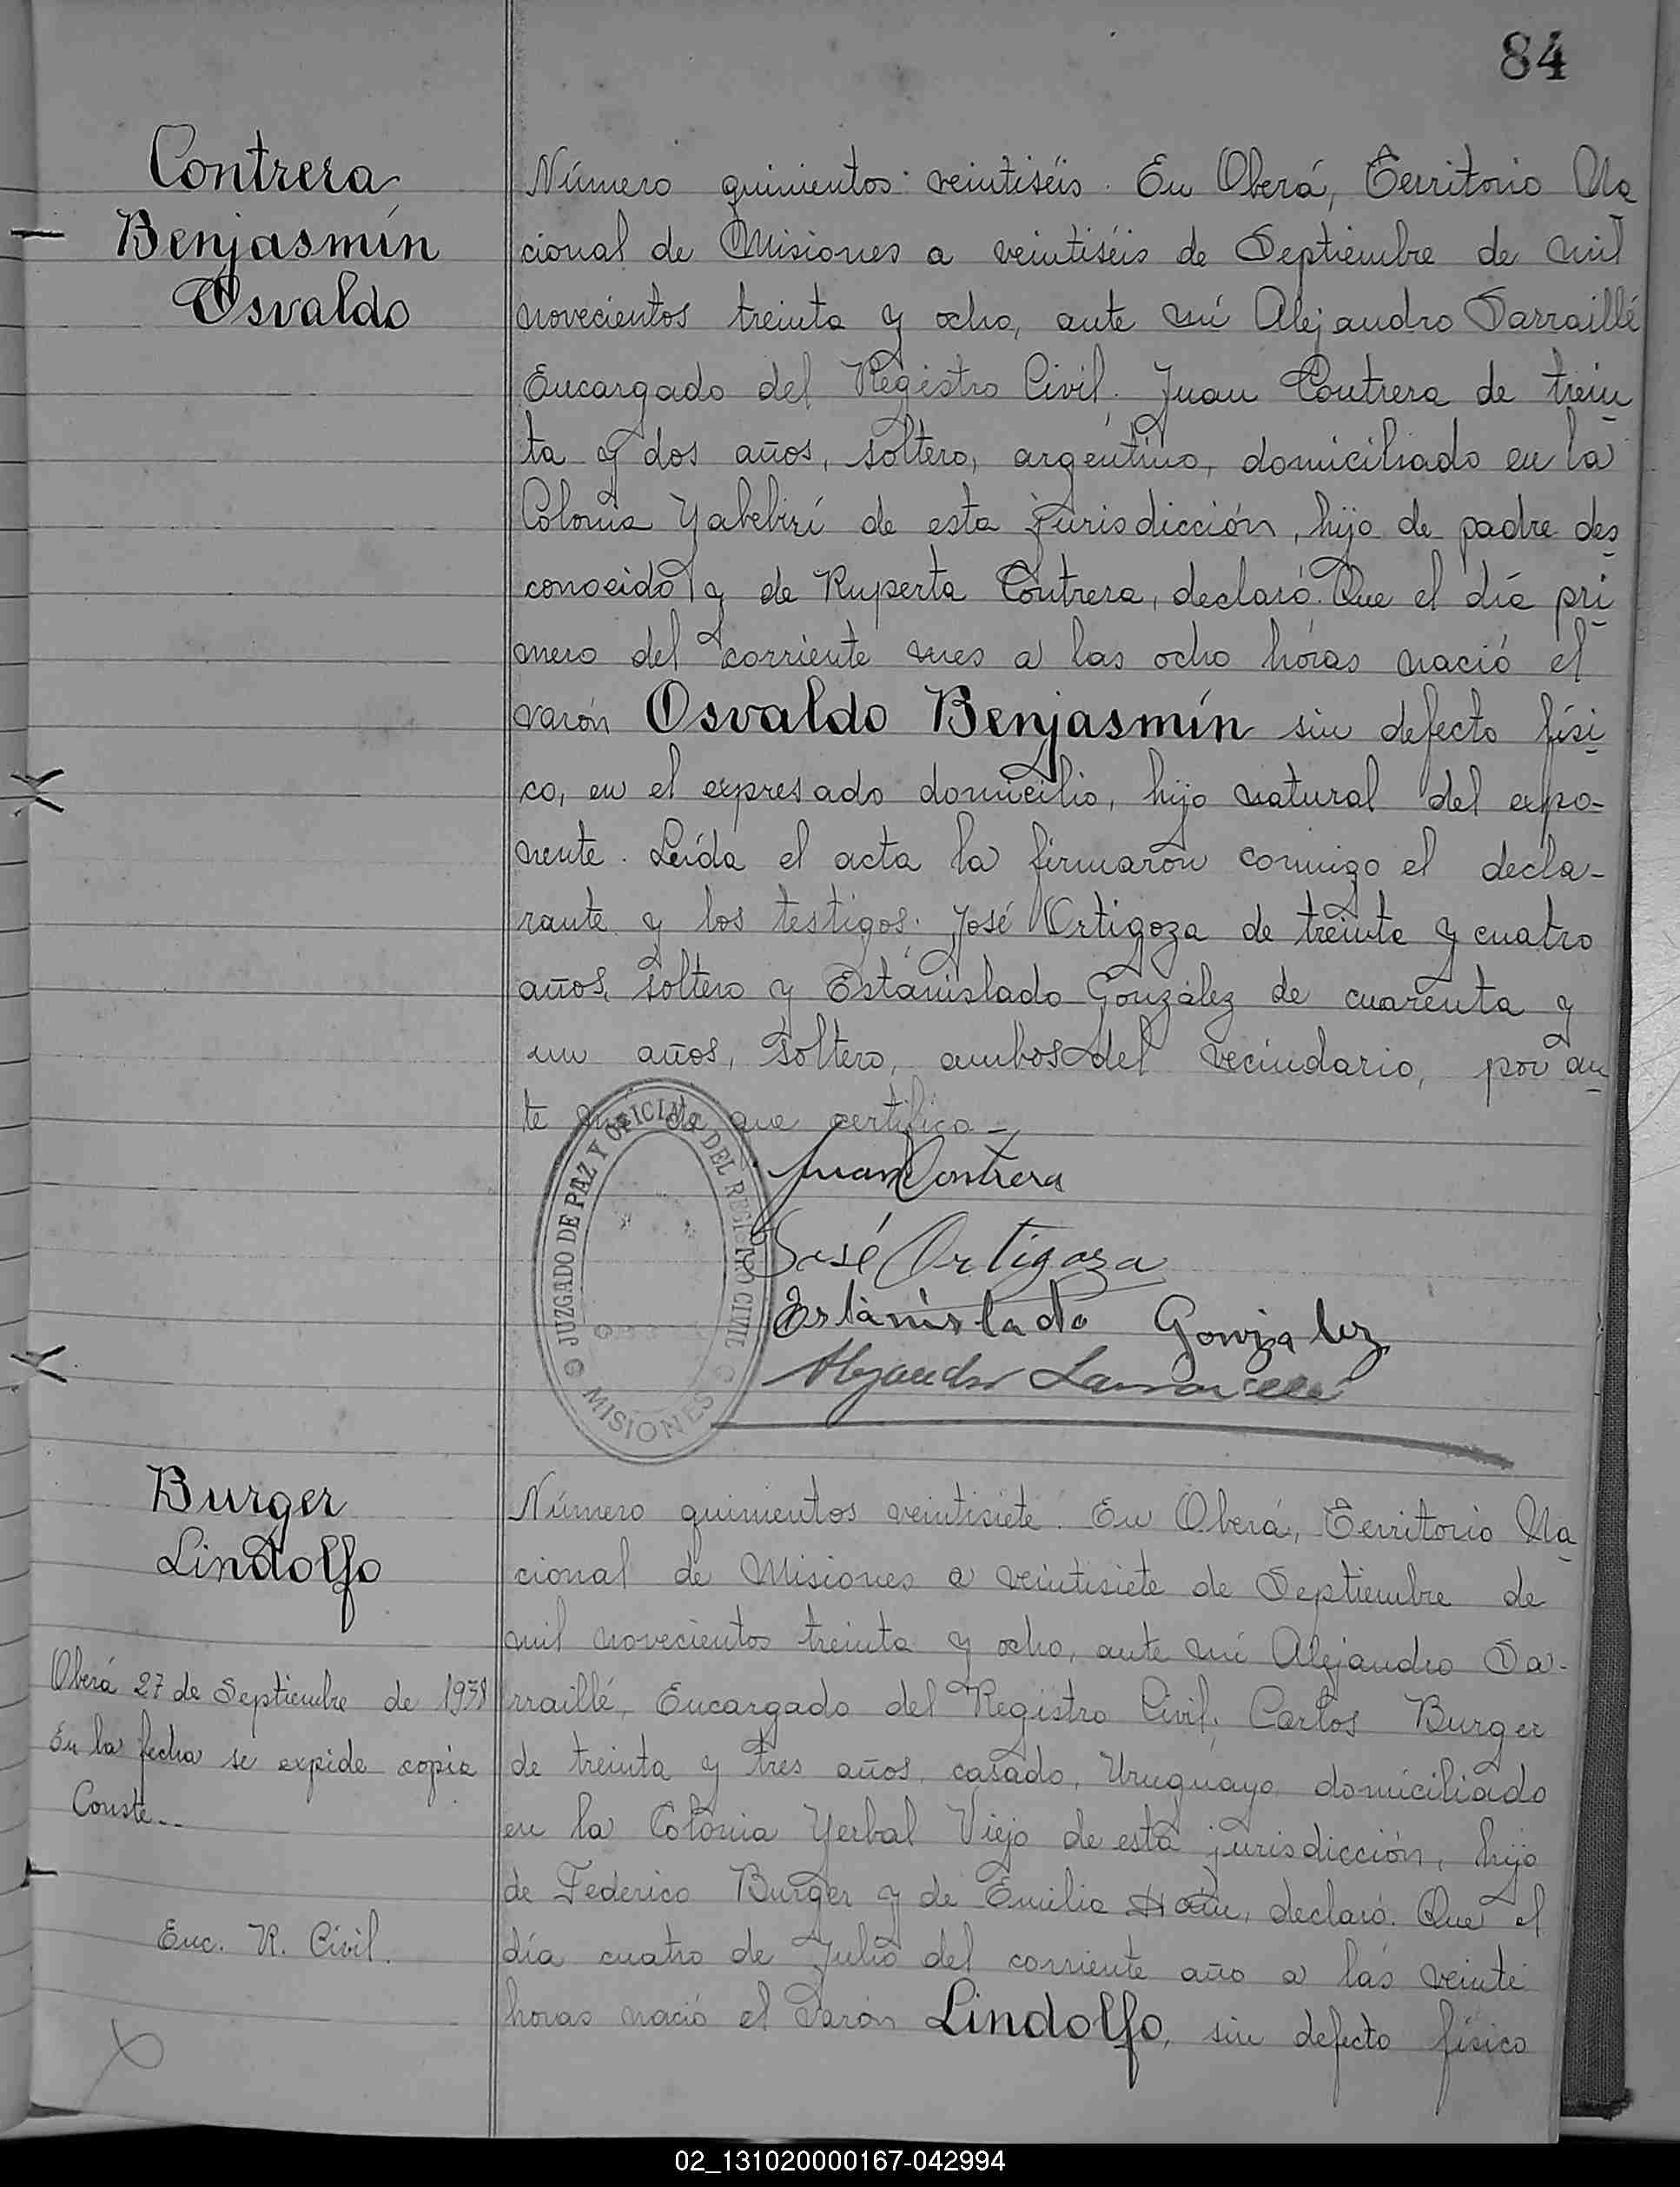 84
Contrera
Benjasmín
Osvaldo
Número quinientos veintiséis. En Oberá, Territorio Na
cional de Misiones a veintiséis de Septiembre de mil
novecientos treinta y ocho, ante mí Alejandro Sarraillé
Encargado del Registro Civil. Juan Contrera de trein
ta y dos años, soltero, argentino, domiciliado en la
Colonia Yabebirí de esta jurisdicción, hijo de padre des
conocido y de Ruperta Contrera, declaró. Que el día pri
mero del corriente mes a las ocho horas nació el
varón Osvaldo Benjasmín sin defecto físi
co, en el expresado domicilio, hijo natural del expo-
nente. Leída el acta la firmaron conmigo el decla-
rante y los testigos. José Ortigoza de treinta y cuatro
años, soltero y Estanislado González de cuarenta y
un años, soltero, ambos del vecindario, por an
te mí de que certifico
JUZGADO DE PAZ Y OFICINA DEL REGISTRO CIVIL
MISIONES
Juan Contrera
José Ortigoza
Estanislado Gonzalez
Alejandro Sarraillé
Burger
Lindolfo
Oberá 27 de Septiembre de 1938
En la fecha se expide copia
Conste..
Enc. R. Civil.
Número quinientos veintisiete. En Oberá, Territorio Na
cional de Misiones a veintisiete de Septiembre de
mil novecientos treinta y ocho, ante mí Alejandro Sa-
rraillé, Encargado del Registro Civil. Carlos Burger
de treinta y tres años, casado, Uruguayo domiciliado
en la Colonia Yerbal Viejo de esta jurisdicción, hijo
de Federico Burger y de Emilia declaró. Que el
día cuatro de Julio del corriente año a las veinte
horas nació el varón Lindolfo, sin defecto físico
02_131020000167-042994